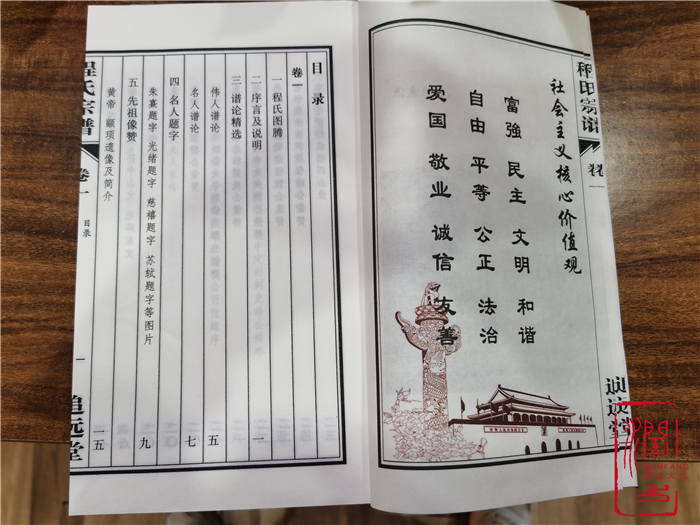 社会主义核心价值观
富強 民主 文明 和谐
自由 平等 公正 法治
爱国 敬业 诚信 友善
程氏宗譜
卷一
目录
一
追远堂
目录
卷一
一 程氏图腾
二 序言及说明 一
三 谱论精选
伟人谱论 五
名人谱论 七
四 名人题字
朱熹题字 光绪题字 慈禧题字 苏轼题字等图片 九
五 先祖像赞
黄帝 颛顼遗像及简介 一五